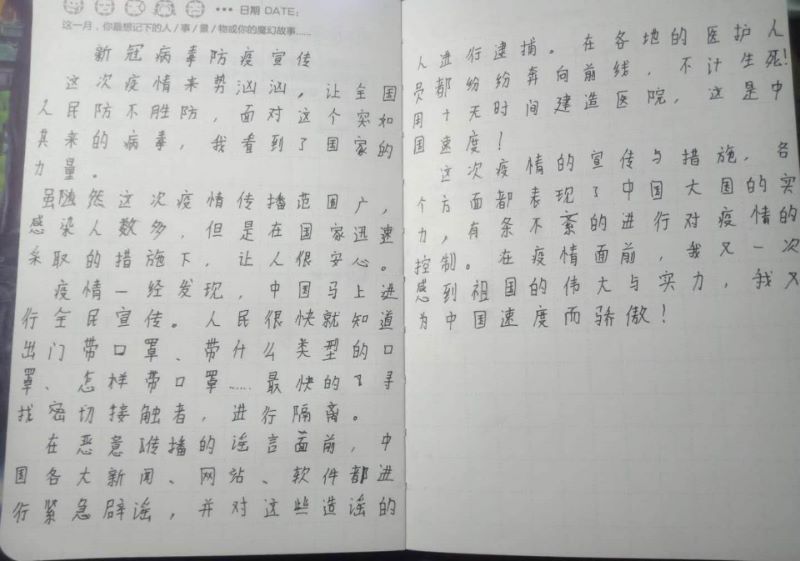 ••• 日期 DATE:
这一月，你最想记下的人/事/景/物或你的魔幻故事……
新冠病毒防疫宣传
这次疫情来势汹汹，让全国
人民防不胜防，面对这个突如
其来的病毒，我看到了国家的
力量。
虽然这次疫情传播范围广，
感染人数多，但是在国家迅速
采取的措施下，让人很安心。
疫情一经发现，中国马上进
行全民宣传。人民很快就知道
出门带口罩、带什么类型的口
罩、怎样带口罩……最快的了寻
找密切接触者，进行隔离。
在恶意传播的谣言面前，中
国各大新闻、网站、软件都进
行紧急辟谣，并对这些造谣的
人进行逮捕。在各地的医护人
员都纷纷奔向前线，不计生死！
用十天时间建造医院，这是中
国速度！
这次疫情的宣传与措施，各
个方面都表现了中国大国的实
力，有条不紊的进行对疫情的
控制。在疫情面前，我又一次
感到祖国的伟大与实力，我又
为中国速度而骄傲！